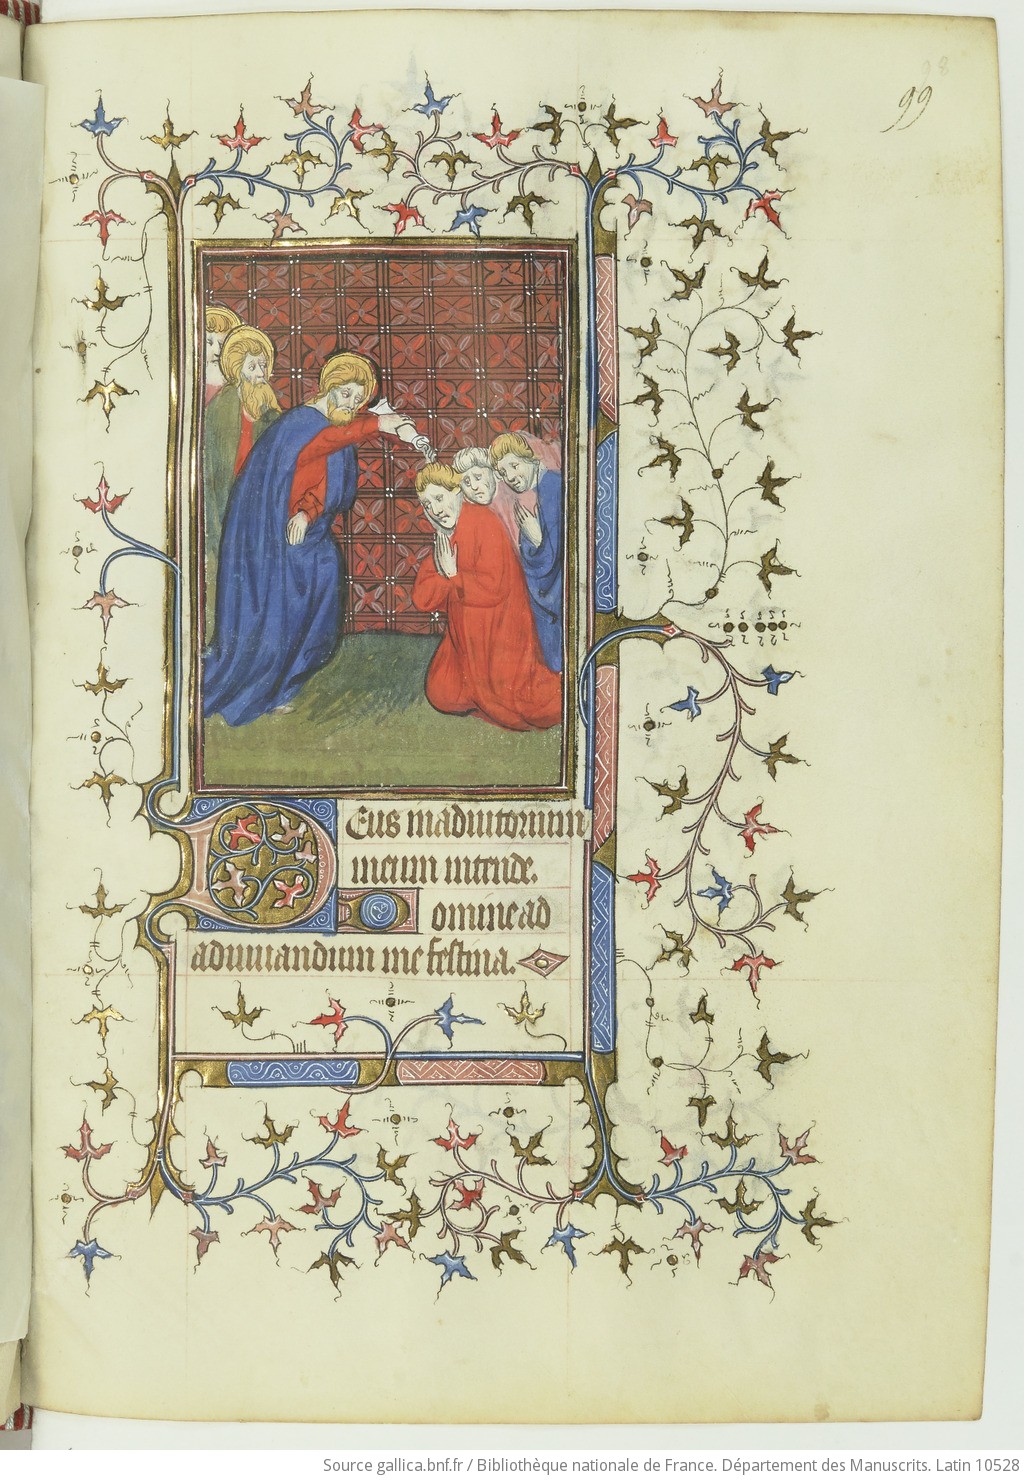 99
Deus in adiutorium
meum intende.
Domine ad
adiuuandum me festina.
Source gallica.bnf.fr / Bibliothèque nationale de France. Département des Manuscrits. Latin 10528